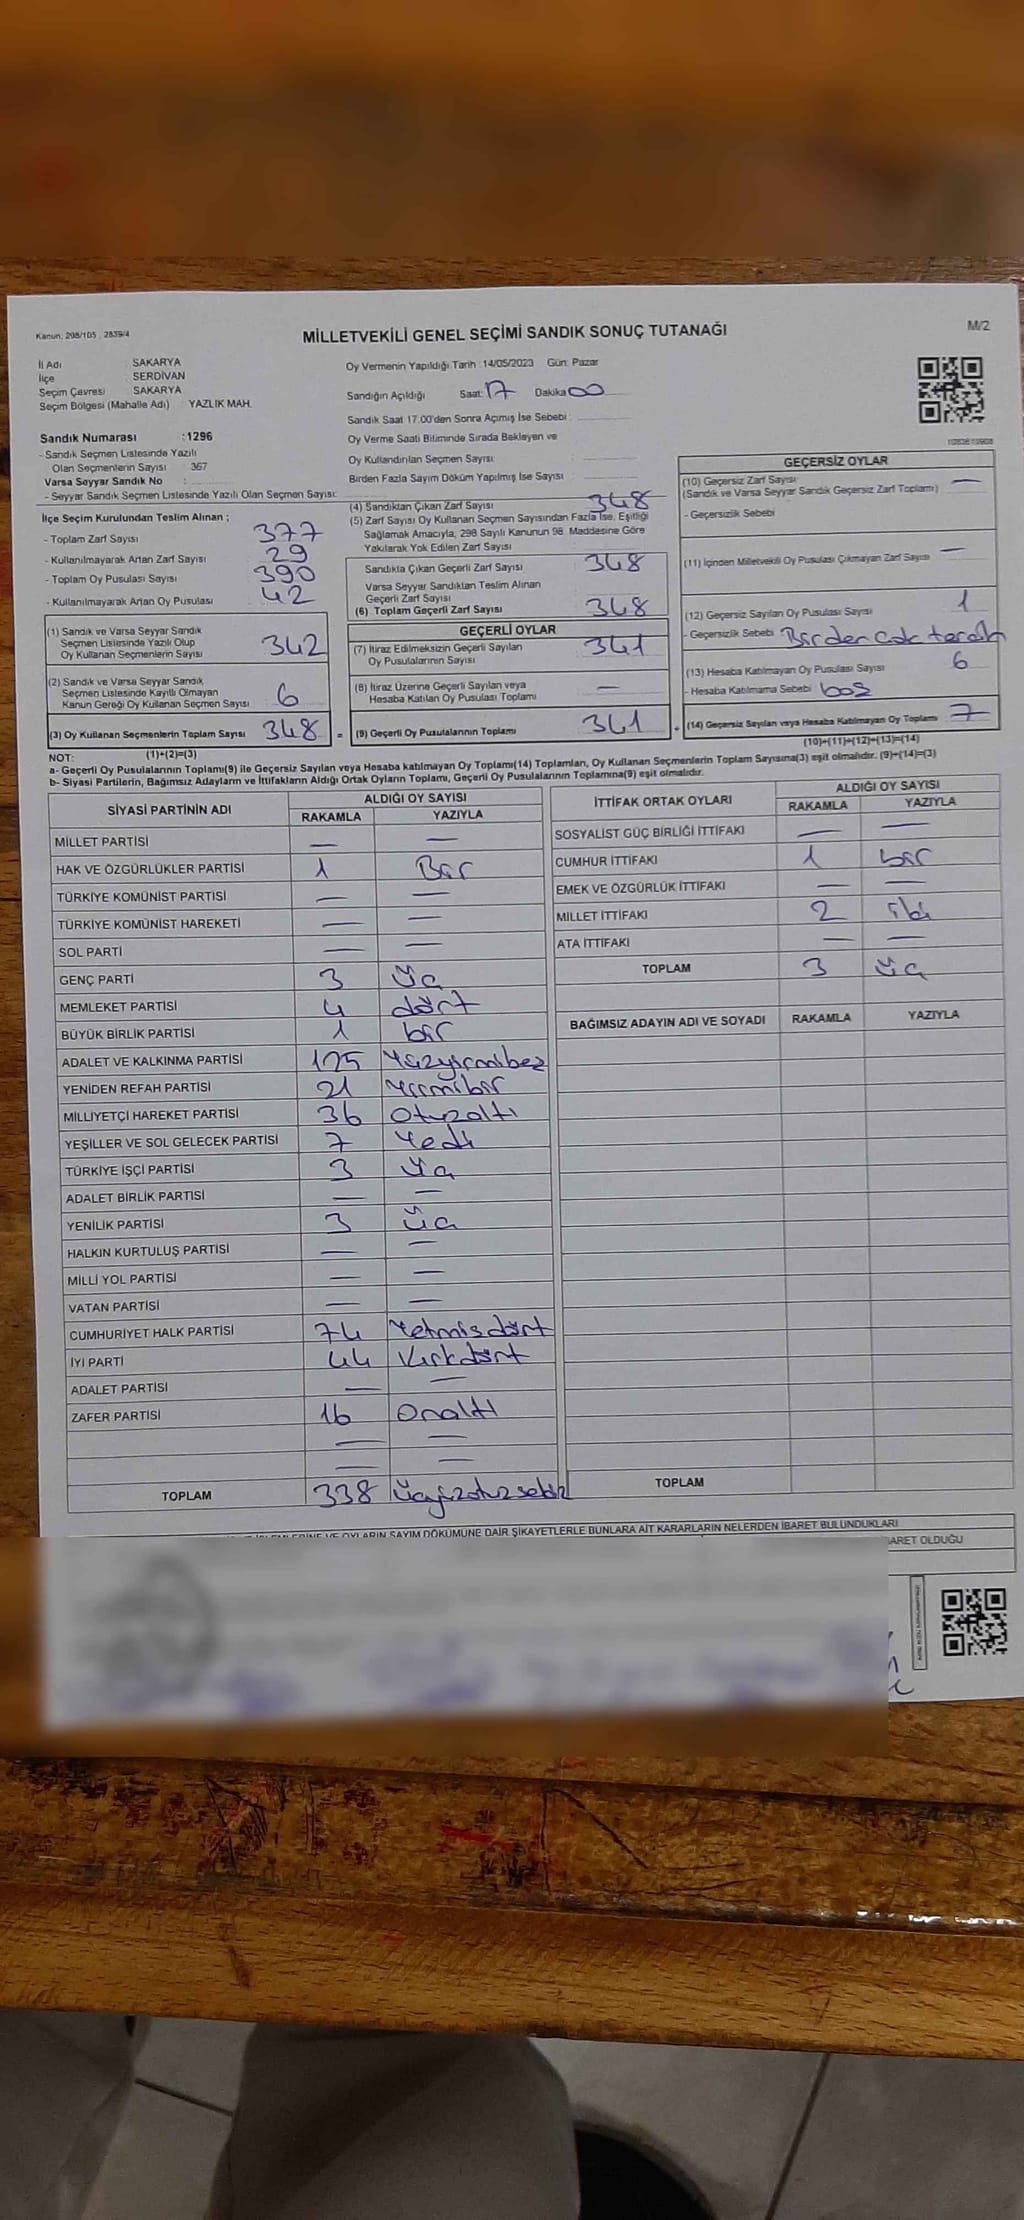 Kanun: 298/105 , 2839/4
MİLLETVEKİLİ GENEL SEÇİMİ SANDIK SONUÇ TUTANAĞI
M/2
İl Adı SAKARYA
İlçe SERDİVAN
Seçim Çevresi SAKARYA
Seçim Bölgesi (Mahalle Adı) YAZLIK MAH.
Oy Vermenin Yapıldığı Tarih : 14/05/2023 Gün: Pazar
Sandığın Açıldığı Saat: 17 Dakika 00
Sandık Saat 17.00'den Sonra Açımış İse Sebebi :
Oy Verme Saati Bitiminde Sırada Bekleyen ve
Oy Kullandırılan Seçmen Sayısı :
Birden Fazla Sayım Döküm Yapılmış İse Sayısı :
Sandık Numarası : 1296
- Sandık Seçmen Listesinde Yazılı
Olan Seçmenlerin Sayısı 367
Varsa Seyyar Sandık No :
- Seyyar Sandık Seçmen Listesinde Yazılı Olan Seçmen Sayısı:
İlçe Seçim Kurulundan Teslim Alınan ;
- Toplam Zarf Sayısı 377
- Kullanılmayarak Artan Zarf Sayısı 29
- Toplam Oy Pusulası Sayısı 390
- Kullanılmayarak Artan Oy Pusulası 42
(1) Sandık ve Varsa Seyyar Sandık
Seçmen Listesinde Yazılı Olup
Oy Kullanan Seçmenlerin Sayısı 342
(2) Sandık ve Varsa Seyyar Sandık
Seçmen Listesinde Kayıtlı Olmayan
Kanun Gereği Oy Kullanan Seçmen Sayısı 6
(3) Oy Kullanan Seçmenlerin Toplam Sayısı 348 =
(4) Sandıktan Çıkan Zarf Sayısı 348
(5) Zarf Sayısı Oy Kullanan Seçmen Sayısından Fazla İse, Eşitliği
Sağlamak Amacıyla, 298 Sayılı Kanunun 98. Maddesine Göre
Yakılarak Yok Edilen Zarf Sayısı
Sandıkta Çıkan Geçerli Zarf Sayısı 348
Varsa Seyyar Sandıktan Teslim Alınan
Geçerli Zarf Sayısı
(6) Toplam Geçerli Zarf Sayısı 348
GEÇERLİ OYLAR
(7) İtiraz Edilmeksizin Geçerli Sayılan
Oy Pusulalarının Sayısı 341
(8) İtiraz Üzerine Geçerli Sayılan veya
Hesaba Katılan Oy Pusulası Toplamı —
(9) Geçerli Oy Pusulalarının Toplamı 341 +
GEÇERSİZ OYLAR
(10) Geçersiz Zarf Sayısı —
(Sandık ve Varsa Seyyar Sandık Geçersiz Zarf Toplamı)
- Geçersizlik Sebebi
(11) İçinden Milletvekili Oy Pusulası Çıkmayan Zarf Sayısı —
(12) Geçersiz Sayılan Oy Pusulası Sayısı 1
- Geçersizlik Sebebi Birden çok tercih
(13) Hesaba Katılmayan Oy Pusulası Sayısı 6
- Hesaba Katılmama Sebebi boş
(14) Geçersiz Sayılan veya Hesaba Katılmayan Oy Toplamı 7
(10)+(11)+(12)+(13)=(14)
NOT: (1)+(2)=(3)
a- Geçerli Oy Pusulalarının Toplamı(9) ile Geçersiz Sayılan veya Hesaba katılmayan Oy Toplamı(14) Toplamları, Oy Kullanan Seçmenlerin Toplam Sayısına(3) eşit olmalıdır. (9)+(14)=(3)
b- Siyasi Partilerin, Bağımsız Adayların ve İttifakların Aldığı Ortak Oyların Toplamı, Geçerli Oy Pusulalarının Toplamına(9) eşit olmalıdır.
SİYASİ PARTİNİN ADI ALDIĞI OY SAYISI
RAKAMLA YAZIYLA
MİLLET PARTİSİ — —
HAK VE ÖZGÜRLÜKLER PARTİSİ 1 Bir
TÜRKİYE KOMÜNİST PARTİSİ — —
TÜRKİYE KOMÜNİST HAREKETİ — —
SOL PARTİ — —
GENÇ PARTİ 3 üç
MEMLEKET PARTİSİ 4 dört
BÜYÜK BİRLİK PARTİSİ 1 bir
ADALET VE KALKINMA PARTİSİ 125 Yüzyirmibeş
YENİDEN REFAH PARTİSİ 21 Yirmibir
MİLLİYETÇİ HAREKET PARTİSİ 36 Otuzaltı
YEŞİLLER VE SOL GELECEK PARTİSİ 7 Yedi
TÜRKİYE İŞÇİ PARTİSİ 3 üç
ADALET BİRLİK PARTİSİ — —
YENİLİK PARTİSİ 3 üç
HALKIN KURTULUŞ PARTİSİ — —
MİLLİ YOL PARTİSİ — —
VATAN PARTİSİ — —
CUMHURİYET HALK PARTİSİ 74 Yetmişdört
İYİ PARTİ 44 Kırkdört
ADALET PARTİSİ — —
ZAFER PARTİSİ 16 Onaltı
— —
— —
TOPLAM 338 Üçyüzotuzsekiz
İTTİFAK ORTAK OYLARI ALDIĞI OY SAYISI
RAKAMLA YAZIYLA
SOSYALİST GÜÇ BİRLİĞİ İTTİFAKI — —
CUMHUR İTTİFAKI 1 bir
EMEK VE ÖZGÜRLÜK İTTİFAKI — —
MİLLET İTTİFAKI 2 iki
ATA İTTİFAKI — —
TOPLAM 3 üç
BAĞIMSIZ ADAYIN ADI VE SOYADI RAKAMLA YAZIYLA
TOPLAM
OYLARIN SAYIM DÖKÜMÜNE DAİR ŞİKAYETLERLE BUNLARA AİT KARARLARIN NELERDEN İBARET BULUNDUKLARI
OLDUĞU